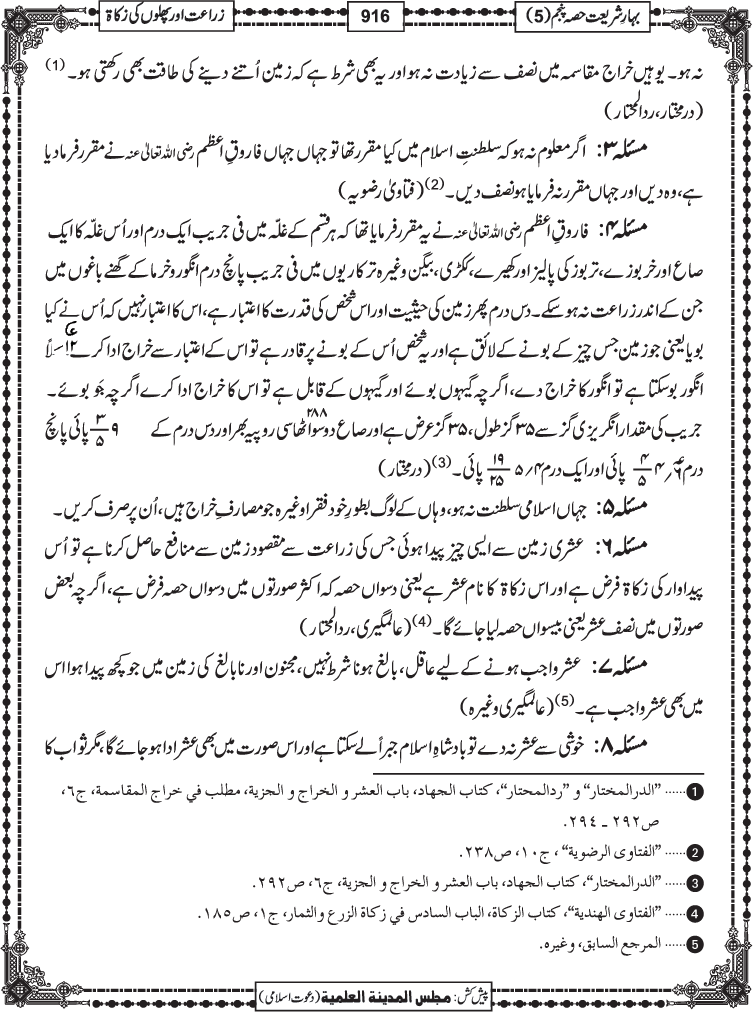 بہارِ شریعت حصہ پنجم (5)
916
زراعت اور پھلوں کی زکاۃ
نہ ہو۔ یوہیں خراج مقاسمہ میں نصف سے زیادت نہ ہو اور یہ بھی شرط ہے کہ زمین اُتنے دینے کی طاقت بھی رکھتی ہو۔ (1)
(درمختار، ردالمحتار)
مسئلہ ۳: اگر معلوم نہ ہو کہ سلطنتِ اسلام میں کیا مقرر تھا تو جہاں جہاں فاروقِ اعظم رضی اللہ تعالیٰ عنہ نے مقرر فرما دیا
ہے، وہ دیں اور جہاں مقرر نہ فرمایا ہو نصف دیں۔ (2) (فتاویٰ رضویہ)
مسئلہ ۴: فاروقِ اعظم رضی اللہ تعالیٰ عنہ نے یہ مقرر فرمایا تھا کہ ہر قسم کے غلّہ میں فی جریب ایک درم اور اُس غلّہ کا ایک
صاع اور خربوزے، تربوز کی پالیز اور کھیرے، ککڑی، بیگن وغیرہ ترکاریوں میں فی جریب پانچ درم انگور و خرما کے گھنے باغوں میں
جن کے اندر زراعت نہ ہو سکے۔ دس درم پھر زمین کی حیثیت اور اس شخص کی قدرت کا اعتبار ہے، اس کا اعتبار نہیں کہ اُس نے کیا
بویا یعنی جو زمین جس چیز کے بونے کے لائق ہے اور یہ شخص اُس کے بونے پر قادر ہے تو اس کے اعتبار سے خراج ادا کرے
انگور بو سکتا ہے تو انگور کا خراج دے، اگرچہ گیہوں بوئے اور گیہوں کے قابل ہے تو اس کا خراج ادا کرے اگرچہ جَو بوئے۔
جریب کی مقدار انگریزی گز سے ۳۵ گز طول، ۳۵ گز عرض ہے اور صاع دو سو اٹھاسی ۲۸۸ روپیہ بھر اور دس درم کے ۹ ۳/۵ پائی پانچ
درم ۴ ۴/۵ پائی اور ایک درم ۴؍ ۵ ۱۹/۲۵ پائی۔ (3) (درمختار)
مسئلہ ۵: جہاں اسلامی سلطنت نہ ہو، وہاں کے لوگ بطورِ خود فقرا وغیرہ جو مصارفِ خراج ہیں، اُن پر صرف کریں۔
مسئلہ ۶: عشری زمین سے ایسی چیز پیدا ہوئی جس کی زراعت سے مقصود زمین سے منافع حاصل کرنا ہے تو اُس
پیداوار کی زکاۃ فرض ہے اور اس زکاۃ کا نام عشر ہے یعنی دسواں حصہ کہ اکثر صورتوں میں دسواں حصہ فرض ہے، اگرچہ بعض
صورتوں میں نصف عشر یعنی بیسواں حصہ لیا جائے گا۔ (4) (عالمگیری، ردالمحتار)
مسئلہ ۷: عشر واجب ہونے کے لیے عاقل، بالغ ہونا شرط نہیں، مجنون اور نابالغ کی زمین میں جو کچھ پیدا ہوا اس
میں بھی عشر واجب ہے۔ (5) (عالمگیری وغیرہ)
مسئلہ ۸: خوشی سے عشر نہ دے تو بادشاہِ اسلام جبراً لے سکتا ہے اور اس صورت میں بھی عشر ادا ہو جائے گا، مگر ثواب کا
1 ...... "الدرالمختار" و "ردالمحتار"، کتاب الجهاد، باب العشر و الخراج و الجزیة، مطلب في خراج المقاسمة، ج٦،
ص۲۹۲ ـ ۲۹٤.
2 ...... "الفتاوی الرضویة"، ج۱۰، ص۲۳۸.
3 ...... "الدرالمختار"، کتاب الجهاد، باب العشر و الخراج و الجزیة، ج٦، ص۲۹۲.
4 ...... "الفتاوی الهندیة"، کتاب الزکاة، الباب السادس في زکاة الزرع والثمار، ج۱، ص۱۸۵.
5 ...... المرجع السابق، وغیره.
پیش کش: مجلس المدینة العلمیة (دعوت اسلامی)